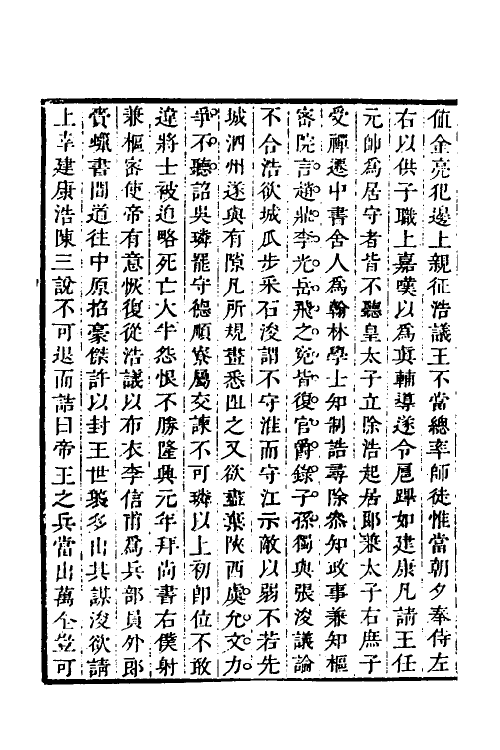 値金亮犯邊上親征浩議王不當總率師徒惟當朝夕奉侍左
右以供子職上嘉嘆以爲眞輔導遂令扈蹕如建康凡請王任
元帥爲居守者皆不聽皇太子立除浩起居郎兼太子右庶子
受禪遷中書舍人爲翰林學士知制誥尋除叅知政事兼知樞
密院言趙鼎李光岳飛之寃皆復官爵錄子孫獨與張浚議論
不合浩欲城瓜步采石浚謂不守淮而守江示敵以弱不若先
城泗州遂與有隙凡所規畫悉阻之又欲盡棄陝西虞允文力
爭不聽詔吳璘罷守德順寮屬交諫不可璘以上初卽位不敢
違將士被迫略死亡大半怨恨不勝隆興元年拜尚書右僕射
兼樞密使帝有意恢復從浩議以布衣李信甫爲兵部員外郎
賫蠟書間道往中原招豪傑許以封王世襲多出其謀浚欲請
上幸建康浩陳三說不可退而詰曰帝王之兵當出萬全豈可